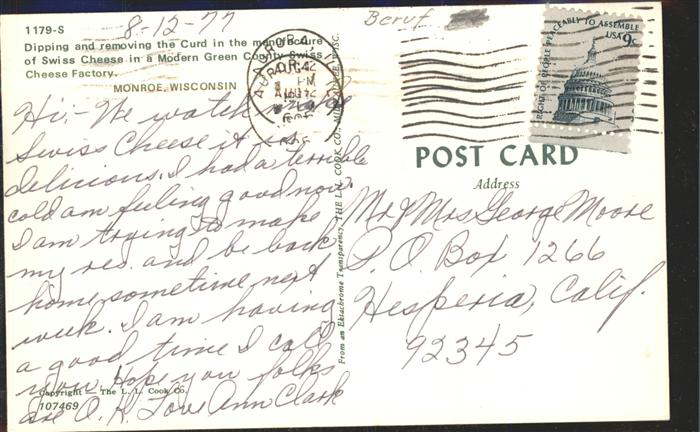 1179-S
8-12-77
Dipping and removing the Curd in the manufacture
of Swiss Cheese in a Modern Green County Swiss
Cheese Factory.
MONROE, WISCONSIN
Hi,- We watch
Swiss Cheese it was
delicious. I had a terrible
cold am feeling good now.
I am trying to make
my res. and be back
home sometime next
week. I am having
a good time I call
now. Hope you folks
are O.K. Love Ann Clark
Copyright — The L. L. Cook Co.
107469
From an Ektachrome Transparency, THE L.L. COOK CO., MILWAUKEE, WISC.
Beruf
RIGHT OF PEOPLE PEACEABLY TO ASSEMBLE
USA 9c
POST CARD
Address
Mr & Mrs George Moore
P.O. Box 1266
Hesperia, Calif.
92345